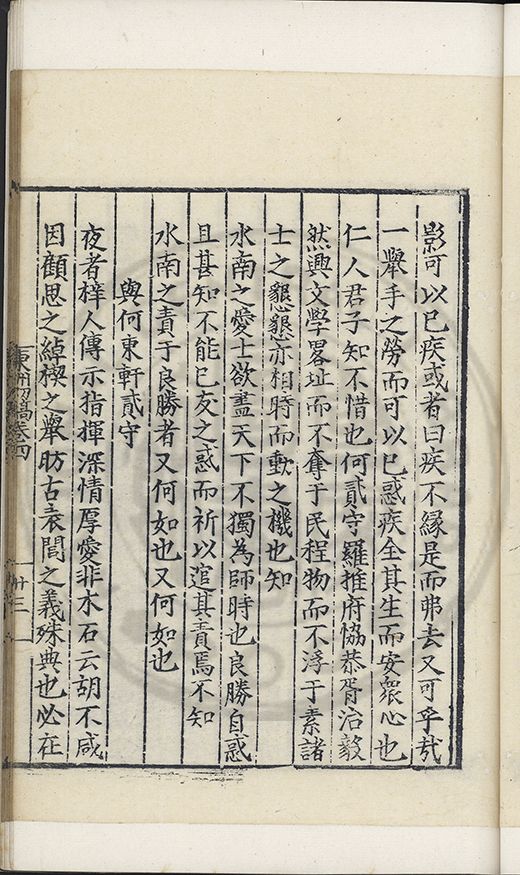 影可以已疾或者曰疾不緣是而弗去又可乎哉
一舉手之勞而可以已惑疾全其生而安眾心也
仁人君子知不惜也何貳守羅推府協恭胥洽毅
然興文學畧址而不奪于民程物而不浮于素諸
士之懇懇亦相時而動之機也知
水南之愛士欲盡天下不獨為師時也良勝自惑
且甚知不能已友之惑而祈以逭其責焉不知
水南之責于良勝者又何如也又何如也
與何東軒貳守
夜者梓人傳示指揮深情厚愛非木石云胡不感
因顧思之綽楔之舉昉古表閭之義殊典也必在
東洲初稿卷四
卅三